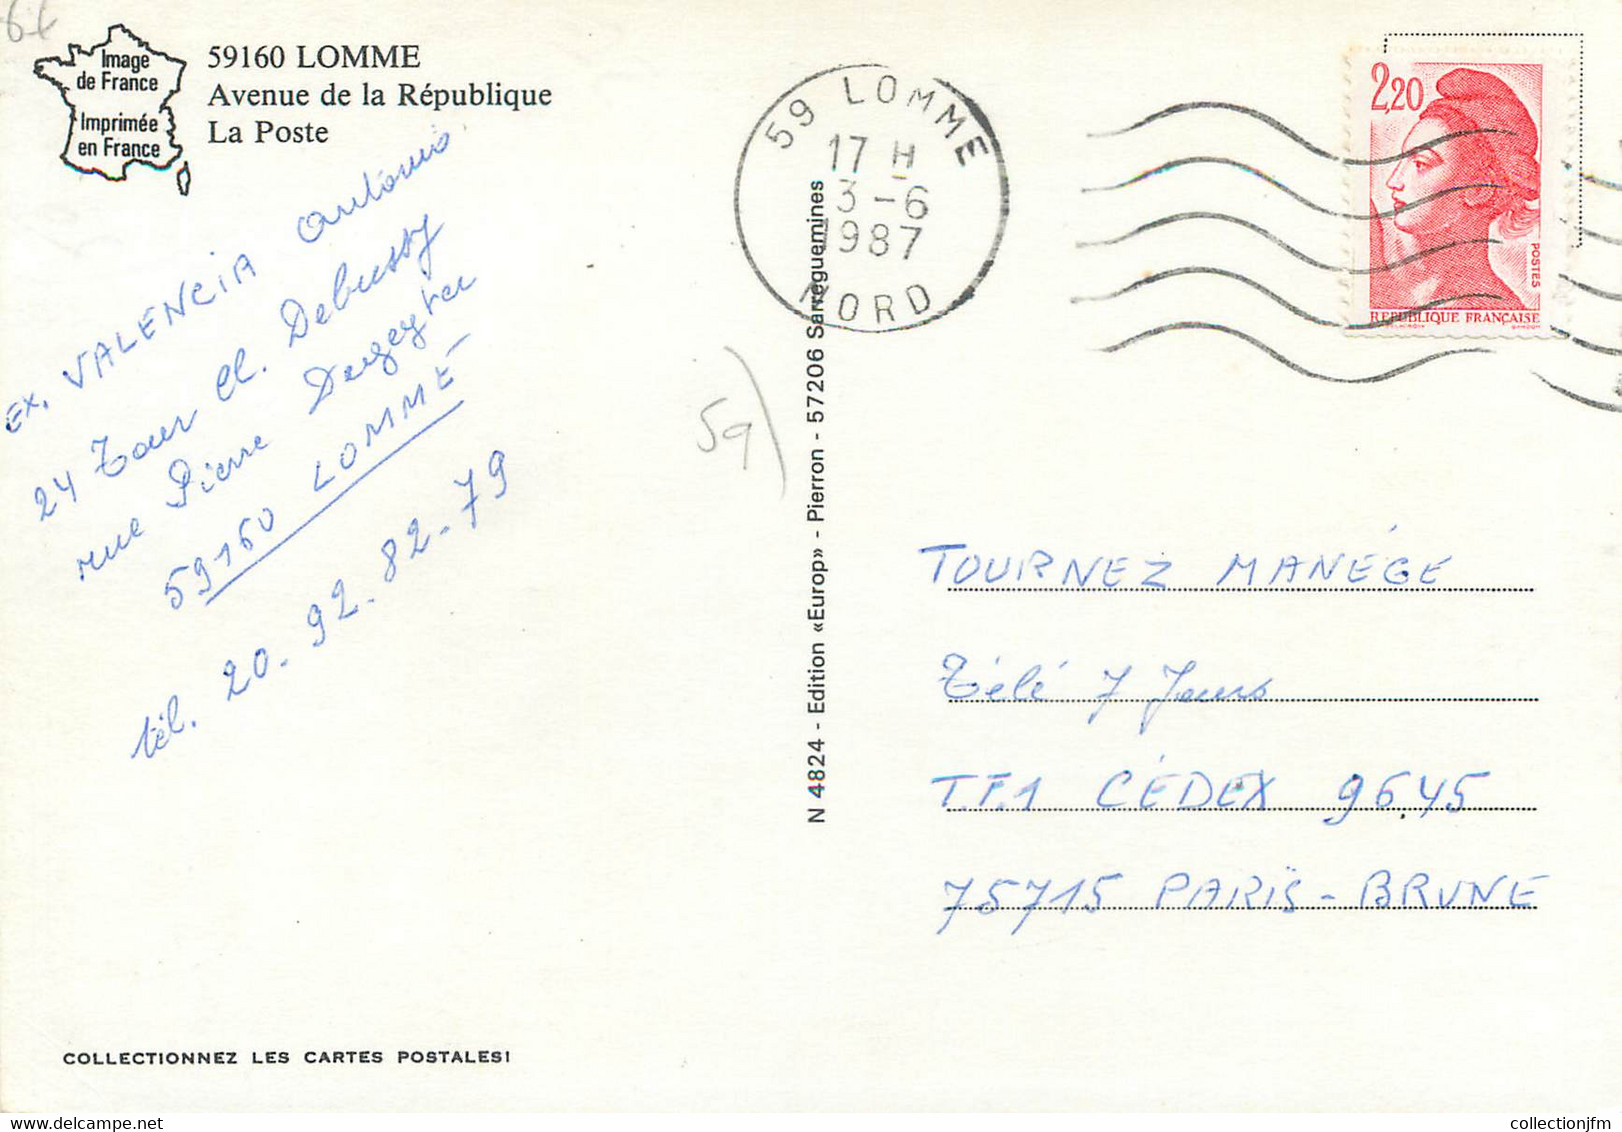 64
Image
de France
Imprimée
en France
59160 LOMME
Avenue de la République
La Poste
EX. VALENCIA Antonio
24 Tour Cl. Debussy
rue Pierre Degeyter
59160 LOMME
tél. 20-92-82-79
59
N 4824 - Edition «Europ» - Pierron - 57206 Sarreguemines
59 LOMME
17 H
3-6
1987
NORD
2,20
POSTES
REPUBLIQUE FRANÇAISE
DELACROIX GANDON
TOURNEZ MANÉGE
Télé 7 Jours
T.F.1 CÉDEX 9645
75715 PARIS-BRUNE
COLLECTIONNEZ LES CARTES POSTALES!
collectionjfm